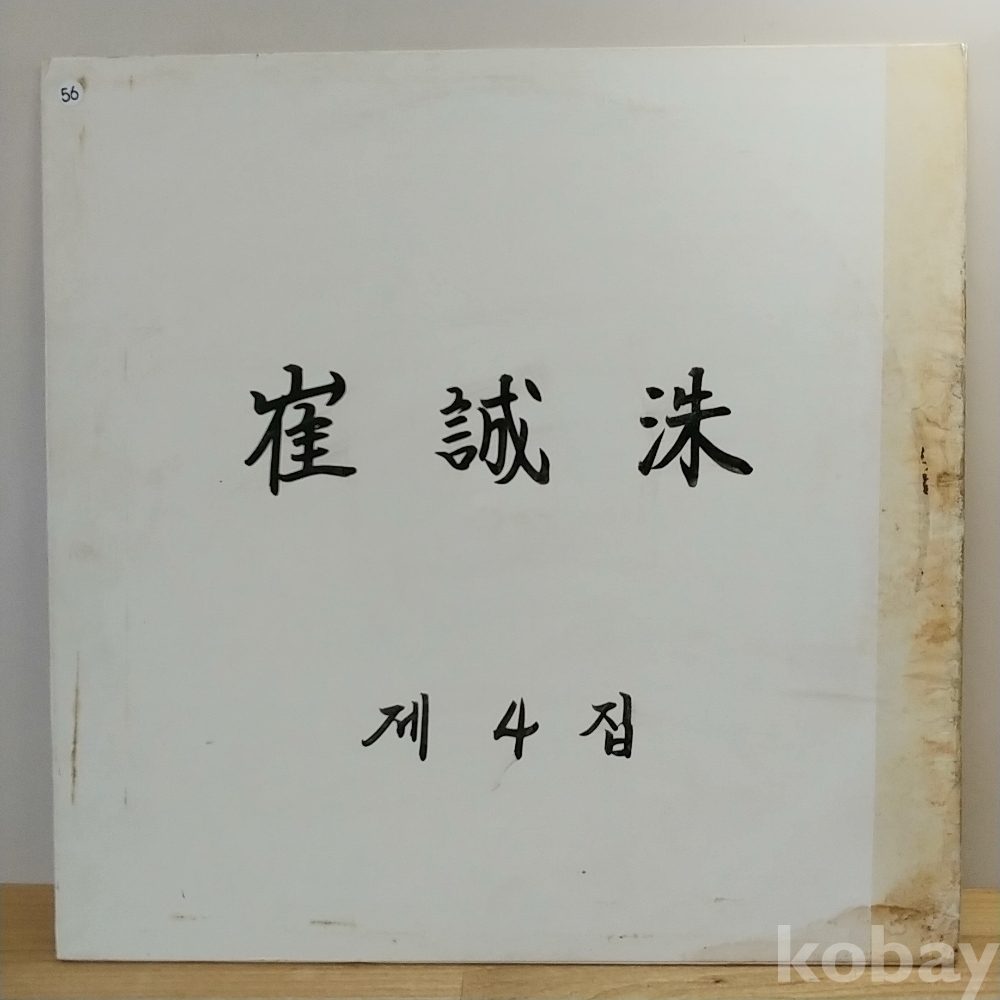 56
崔 誠 洙
제 4 집
kobay